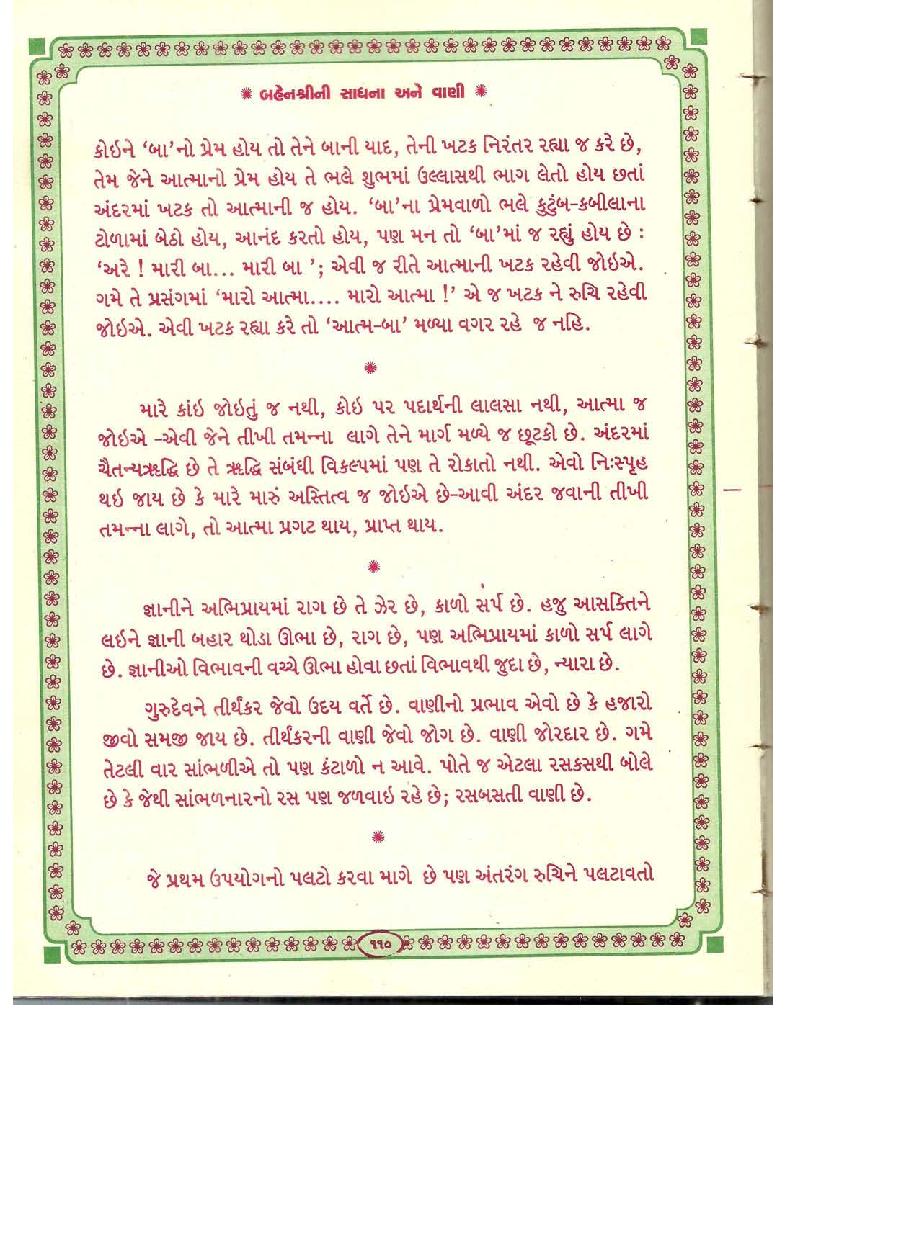 ✺ બહેનશ્રીની સાધના અને વાણી ✺
કોઇને ‘બા’નો પ્રેમ હોય તો તેને બાની યાદ, તેની ખટક નિરંતર રહ્યા જ કરે છે,
તેમ જેને આત્માનો પ્રેમ હોય તે ભલે શુભમાં ઉલ્લાસથી ભાગ લેતો હોય છતાં
અંદરમાં ખટક તો આત્માની જ હોય. ‘બા’ના પ્રેમવાળો ભલે કુટુંબ-કબીલાના
ટોળામાં બેઠો હોય, આનંદ કરતો હોય, પણ મન તો ‘બા’માં જ રહ્યું હોય છે :
‘અરે ! મારી બા... મારી બા ’; એવી જ રીતે આત્માની ખટક રહેવી જોઇએ.
ગમે તે પ્રસંગમાં ‘મારો આત્મા.... મારો આત્મા !’ એ જ ખટક ને રુચિ રહેવી
જોઇએ. એવી ખટક રહ્યા કરે તો ‘આત્મ-બા’ મળ્યા વગર રહે જ નહિ.
✺
મારે કાંઇ જોઇતું જ નથી, કોઇ પર પદાર્થની લાલસા નથી, આત્મા જ
જોઇએ -એવી જેને તીખી તમન્ના લાગે તેને માર્ગ મળ્યે જ છૂટકો છે. અંદરમાં
ચૈતન્યઋદ્ધિ છે તે ઋદ્ધિ સંબંધી વિકલ્પમાં પણ તે રોકાતો નથી. એવો નિઃસ્પૃહ
થઇ જાય છે કે મારે મારું અસ્તિત્વ જ જોઇએ છે-આવી અંદર જવાની તીખી
તમન્ના લાગે, તો આત્મા પ્રગટ થાય, પ્રાપ્ત થાય.
✺
જ્ઞાનીને અભિપ્રાયમાં રાગ છે તે ઝેર છે, કાળો સર્પ છે. હજુ આસક્તિને
લઇને જ્ઞાની બહાર થોડા ઊભા છે, રાગ છે, પણ અભિપ્રાયમાં કાળો સર્પ લાગે
છે. જ્ઞાનીઓ વિભાવની વચ્ચે ઊભા હોવા છતાં વિભાવથી જુદા છે, ન્યારા છે.
ગુરુદેવને તીર્થંકર જેવો ઉદય વર્તે છે. વાણીનો પ્રભાવ એવો છે કે હજારો
જીવો સમજી જાય છે. તીર્થંકરની વાણી જેવો જોગ છે. વાણી જોરદાર છે. ગમે
તેટલી વાર સાંભળીએ તો પણ કંટાળો ન આવે. પોતે જ એટલા રસકસથી બોલે
છે કે જેથી સાંભળનારનો રસ પણ જળવાઇ રહે છે; રસબસતી વાણી છે.
✺
જે પ્રથમ ઉપયોગનો પલટો કરવા માગે છે પણ અંતરંગ રુચિને પલટાવતો
૧૧૦